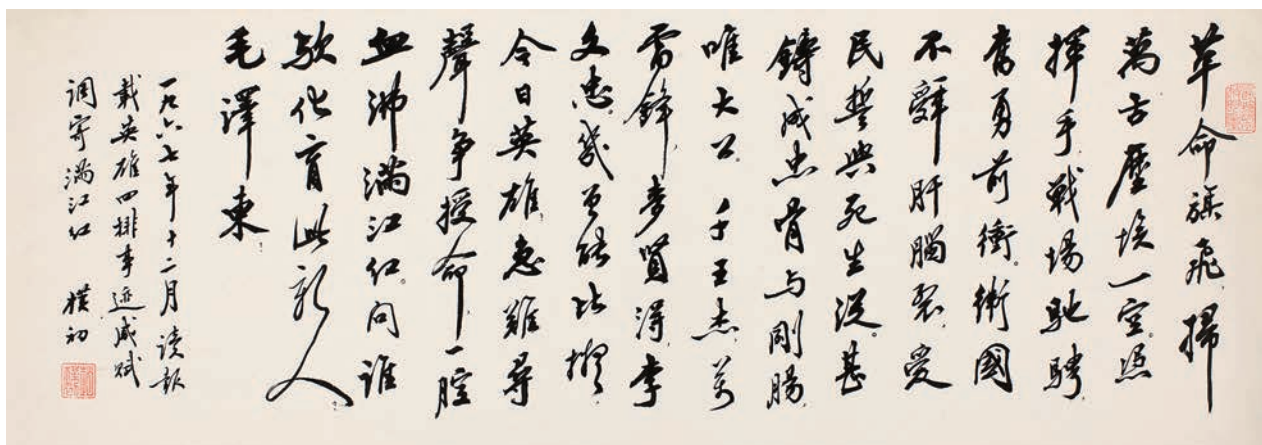 革命旗飛，掃
萬古塵埃一空。憑
揮手，戰場馳騁，
奮勇前衝。衛國
不辭肝腦裂，愛
民誓與死生從。甚
鑄成忠骨与剛腸，
唯大公。千王杰，万
雷鋒，麥賢得，李
文忠。幾曾能比擬
今日英雄。急難尋
聲爭授命，一腔
血沸滿江红。问誰
欤化育此新人，
毛澤東。
一九六七年十二月讀報
載英雄四排事迹感赋
调寄满江红 樸初